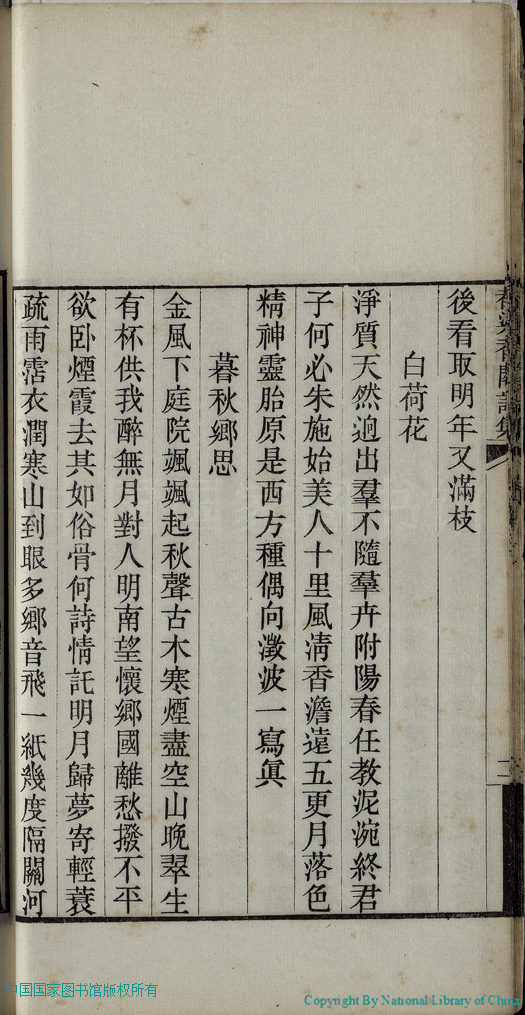 後看取明年又滿枝
白荷花
淨質天然逈出羣不隨羣卉附陽春任教泥涴終君
子何必朱施始美人十里風淸香澹遠五更月落色
精神靈胎原是西方種偶向澂波一寫眞
暮秋鄉思
金風下庭院颯颯起秋聲古木寒煙盡空山晚翠生
有杯供我醉無月對人明南望懷鄉國離愁撥不平
欲卧煙霞去其如俗骨何詩情託明月歸夢寄輕蓑
疏雨霑衣潤寒山到眼多鄉音飛一紙幾度隔關河
二
中国国家图书馆版权所有
Copyright By National Library of China